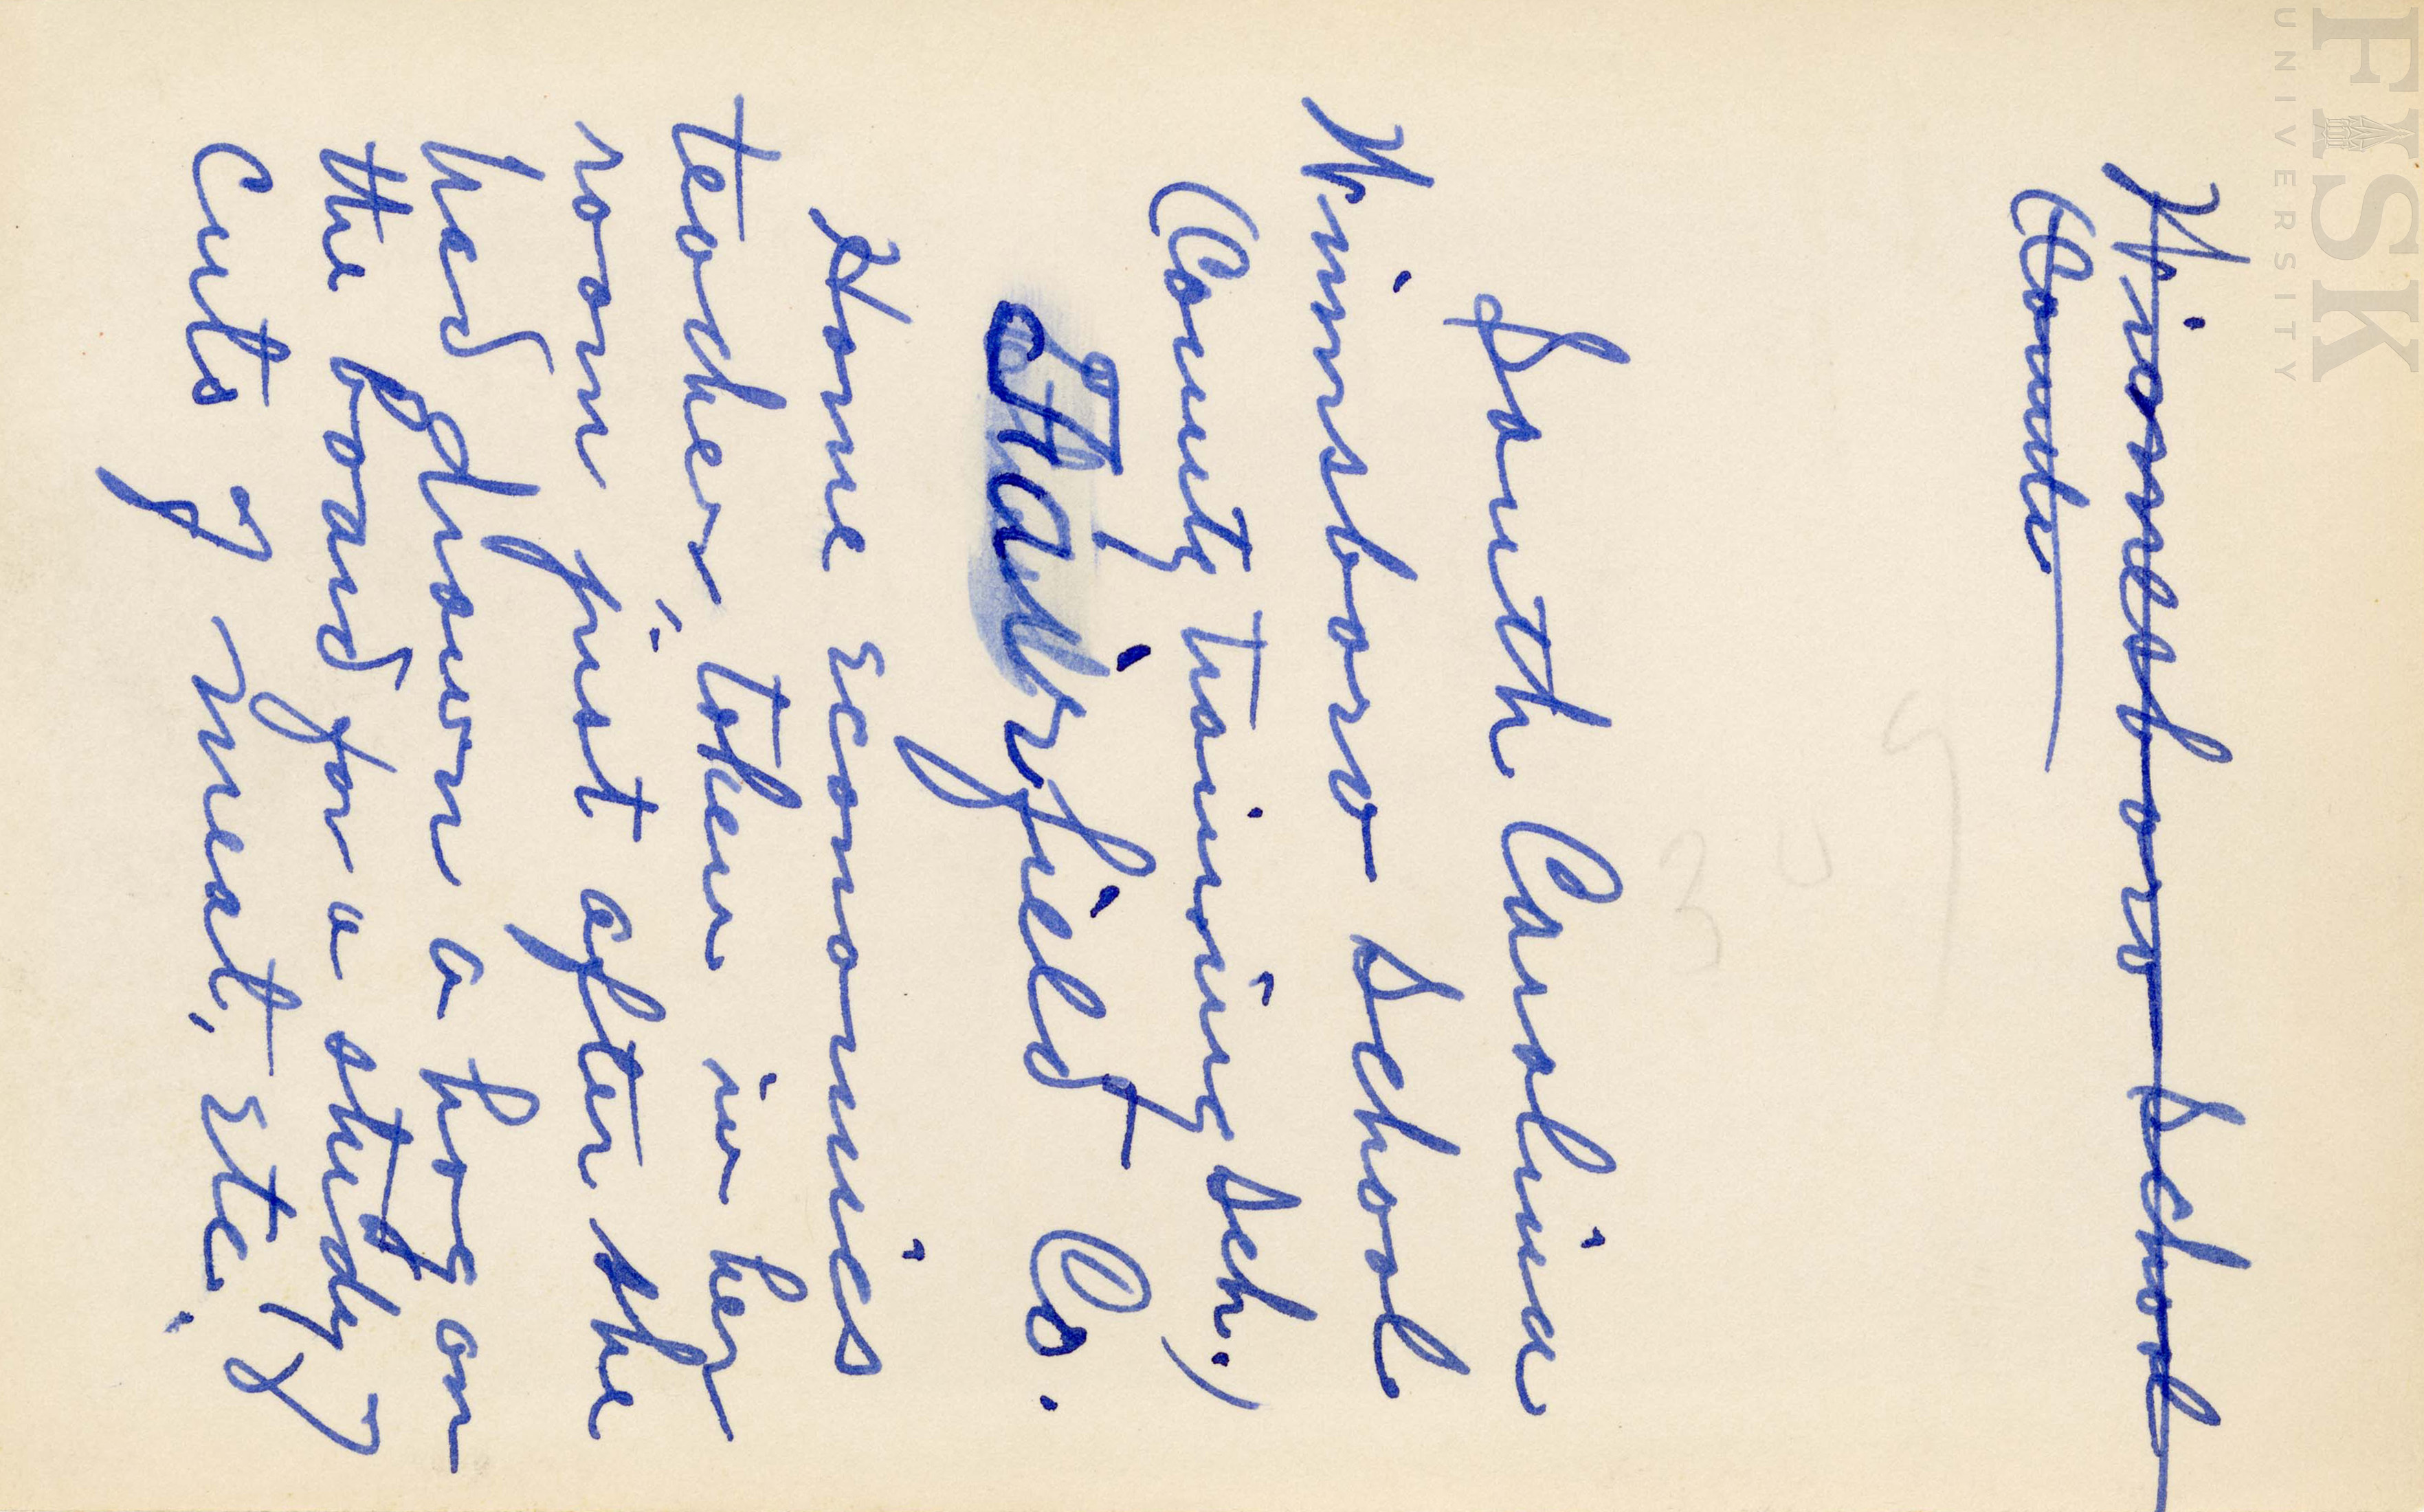 FISK
UNIVERSITY
Winnsboro School
(Count
South Carolina
Winnsboro School
(County Training Sch.)
Fairfield Co.
Home economics
teacher, taken in her
room just after she
had drawn a hog on
the board for a study of
cuts of meat, etc.